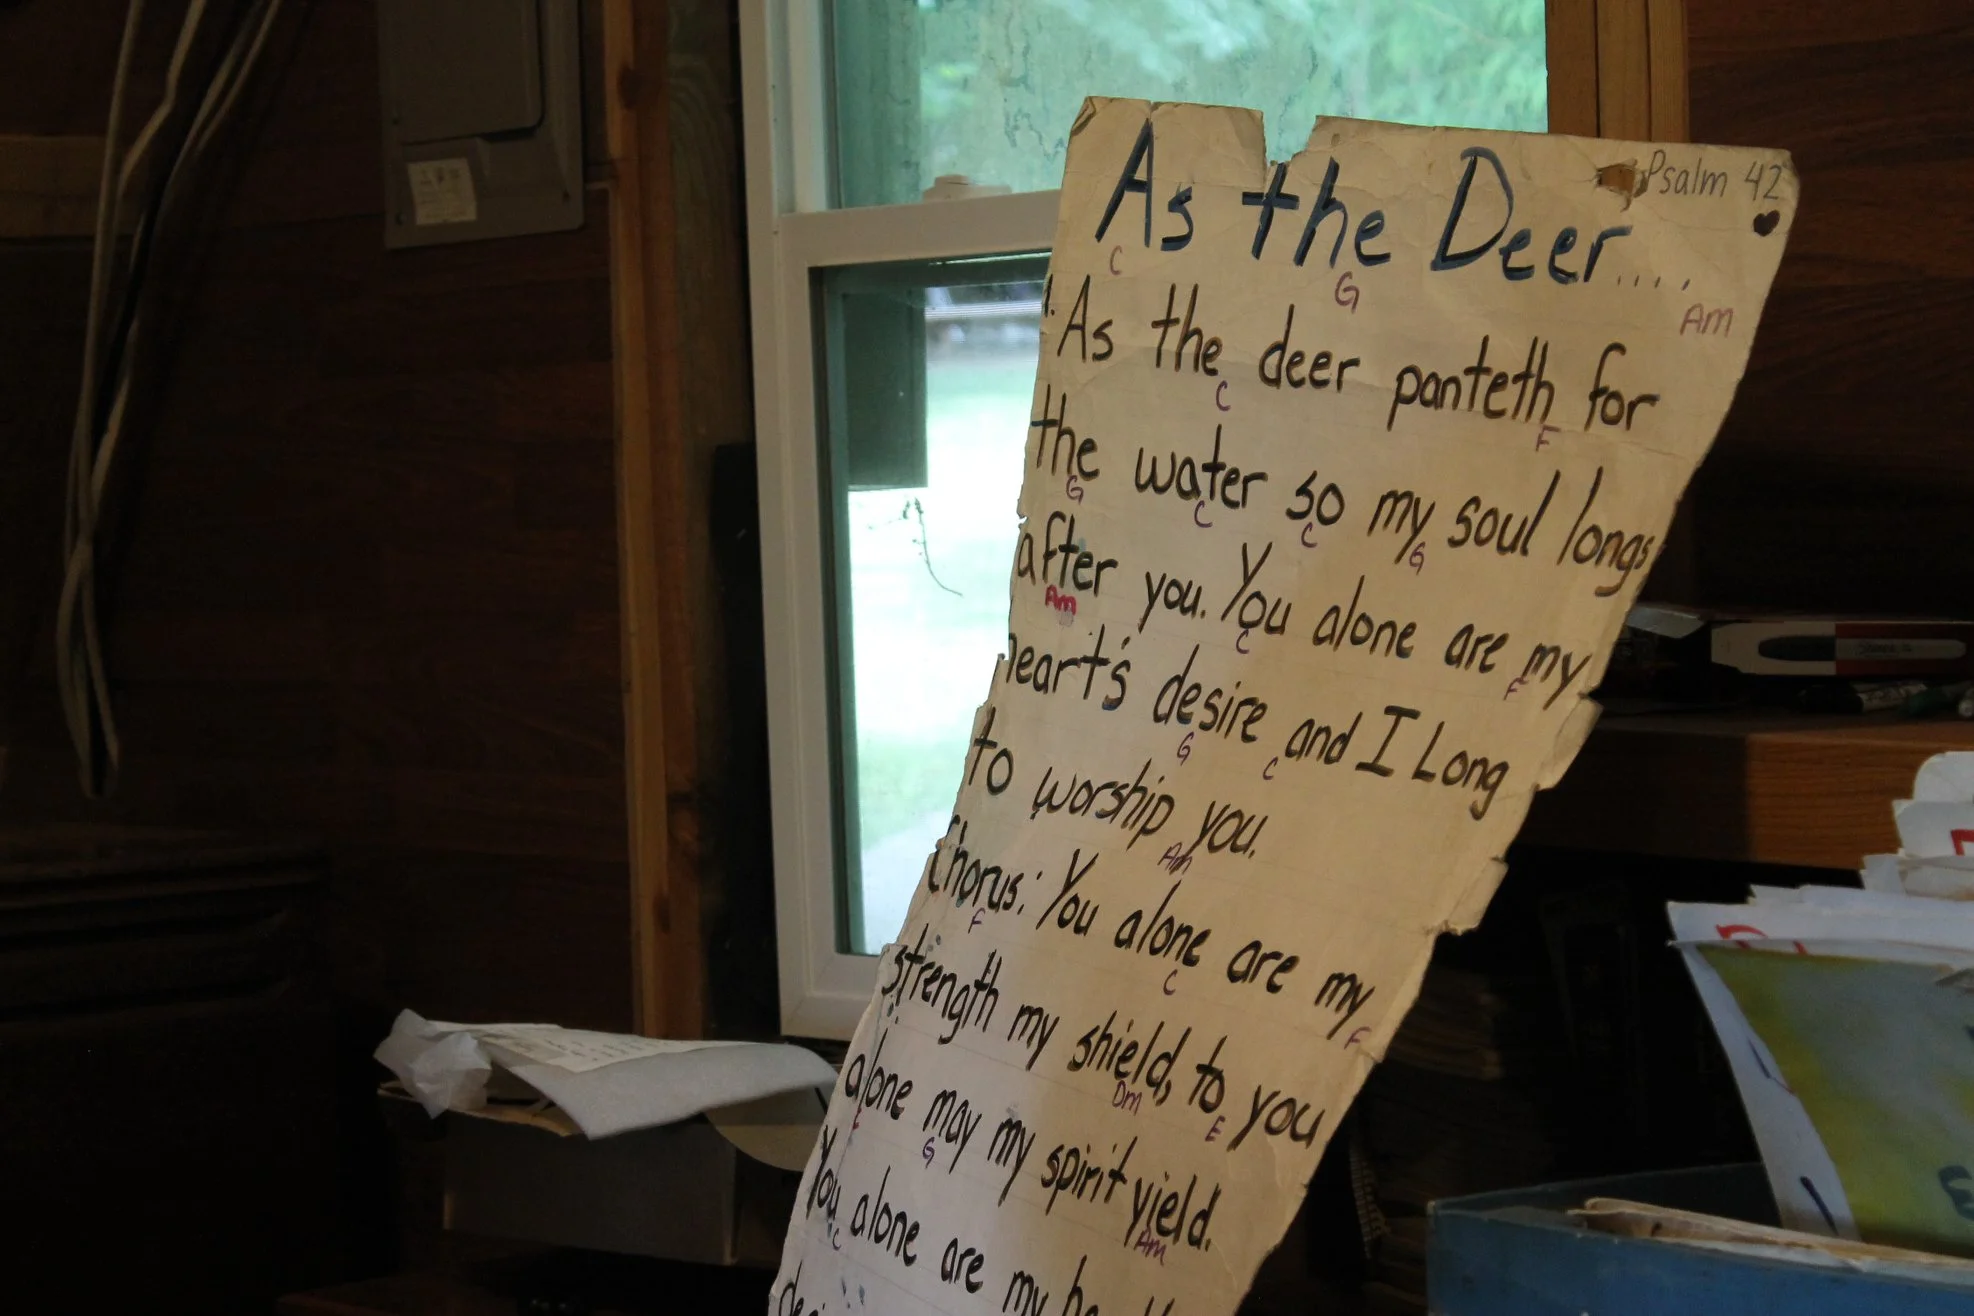 Psalm 42
As the Deer....
C G Am
1. As the deer panteth for
C F
the water so my soul longs
G C C G
after you. You alone are my
Am C F
heart's desire and I Long
G C
to worship you.
Am
Chorus: You alone are my
F C F
strength my shield, to you
Dm E
alone may my spirit yield.
G Am
You alone are my
C